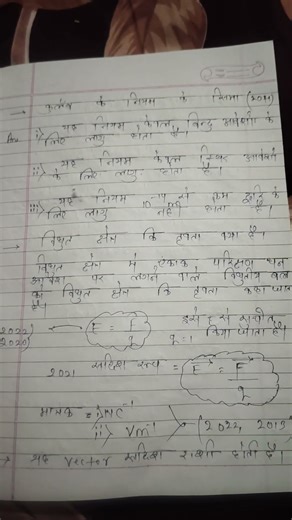 → कूलॉम के नियम के सीमा (2020)
Ans. i⟩ यह नियम केवल बिन्दु आवेशों के
लिए लागु होता है।
ii⟩ यह नियम केवल स्थिर आवेशों
के लिए लागु होता है।
iii⟩ यह नियम 10 से कम दूरी के
लिए लागु नहीं होता है।
→ विद्युत क्षेत्र कि तीव्रता क्या है।
विद्युत क्षेत्र में एकांक परिक्षण धन
आवेश पर लगने वाले विद्युतीय बल
को विद्युत क्षेत्र कि तीव्रता कहा जाता
है।
2022)
2020) E = F/q इसे E से सूचित
किया जाता है।
q=1
2021 सदिश रूप = E = F/q
मात्रक = i⟩ NC⁻¹
ii⟩ Vm⁻¹ (2022, 2019)
→ यह vector सदिश राशी होती है।